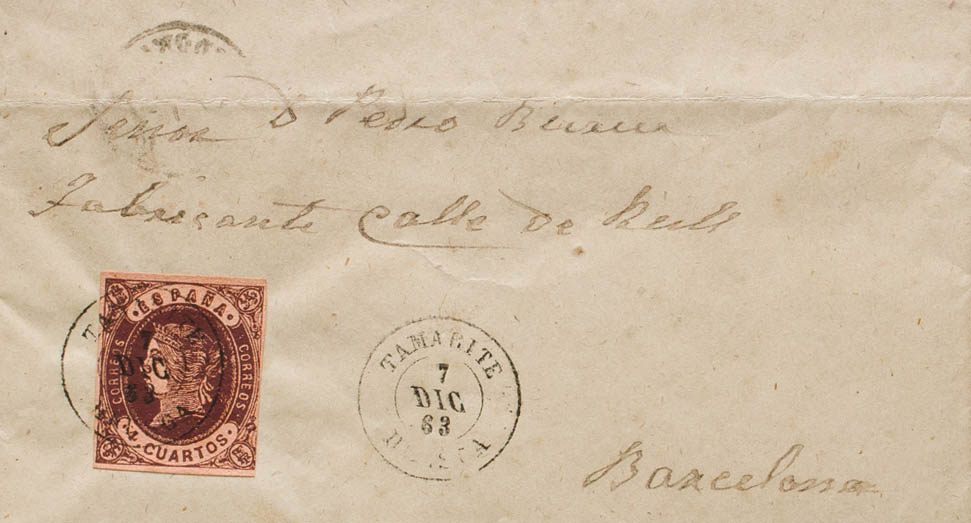 Señor D Pedro
Fabricante Calle de
ESPAÑA
CORREOS
CORREOS
4 CUARTOS
DIC
63
TAMARITE
7
DIC
63
Barcelona